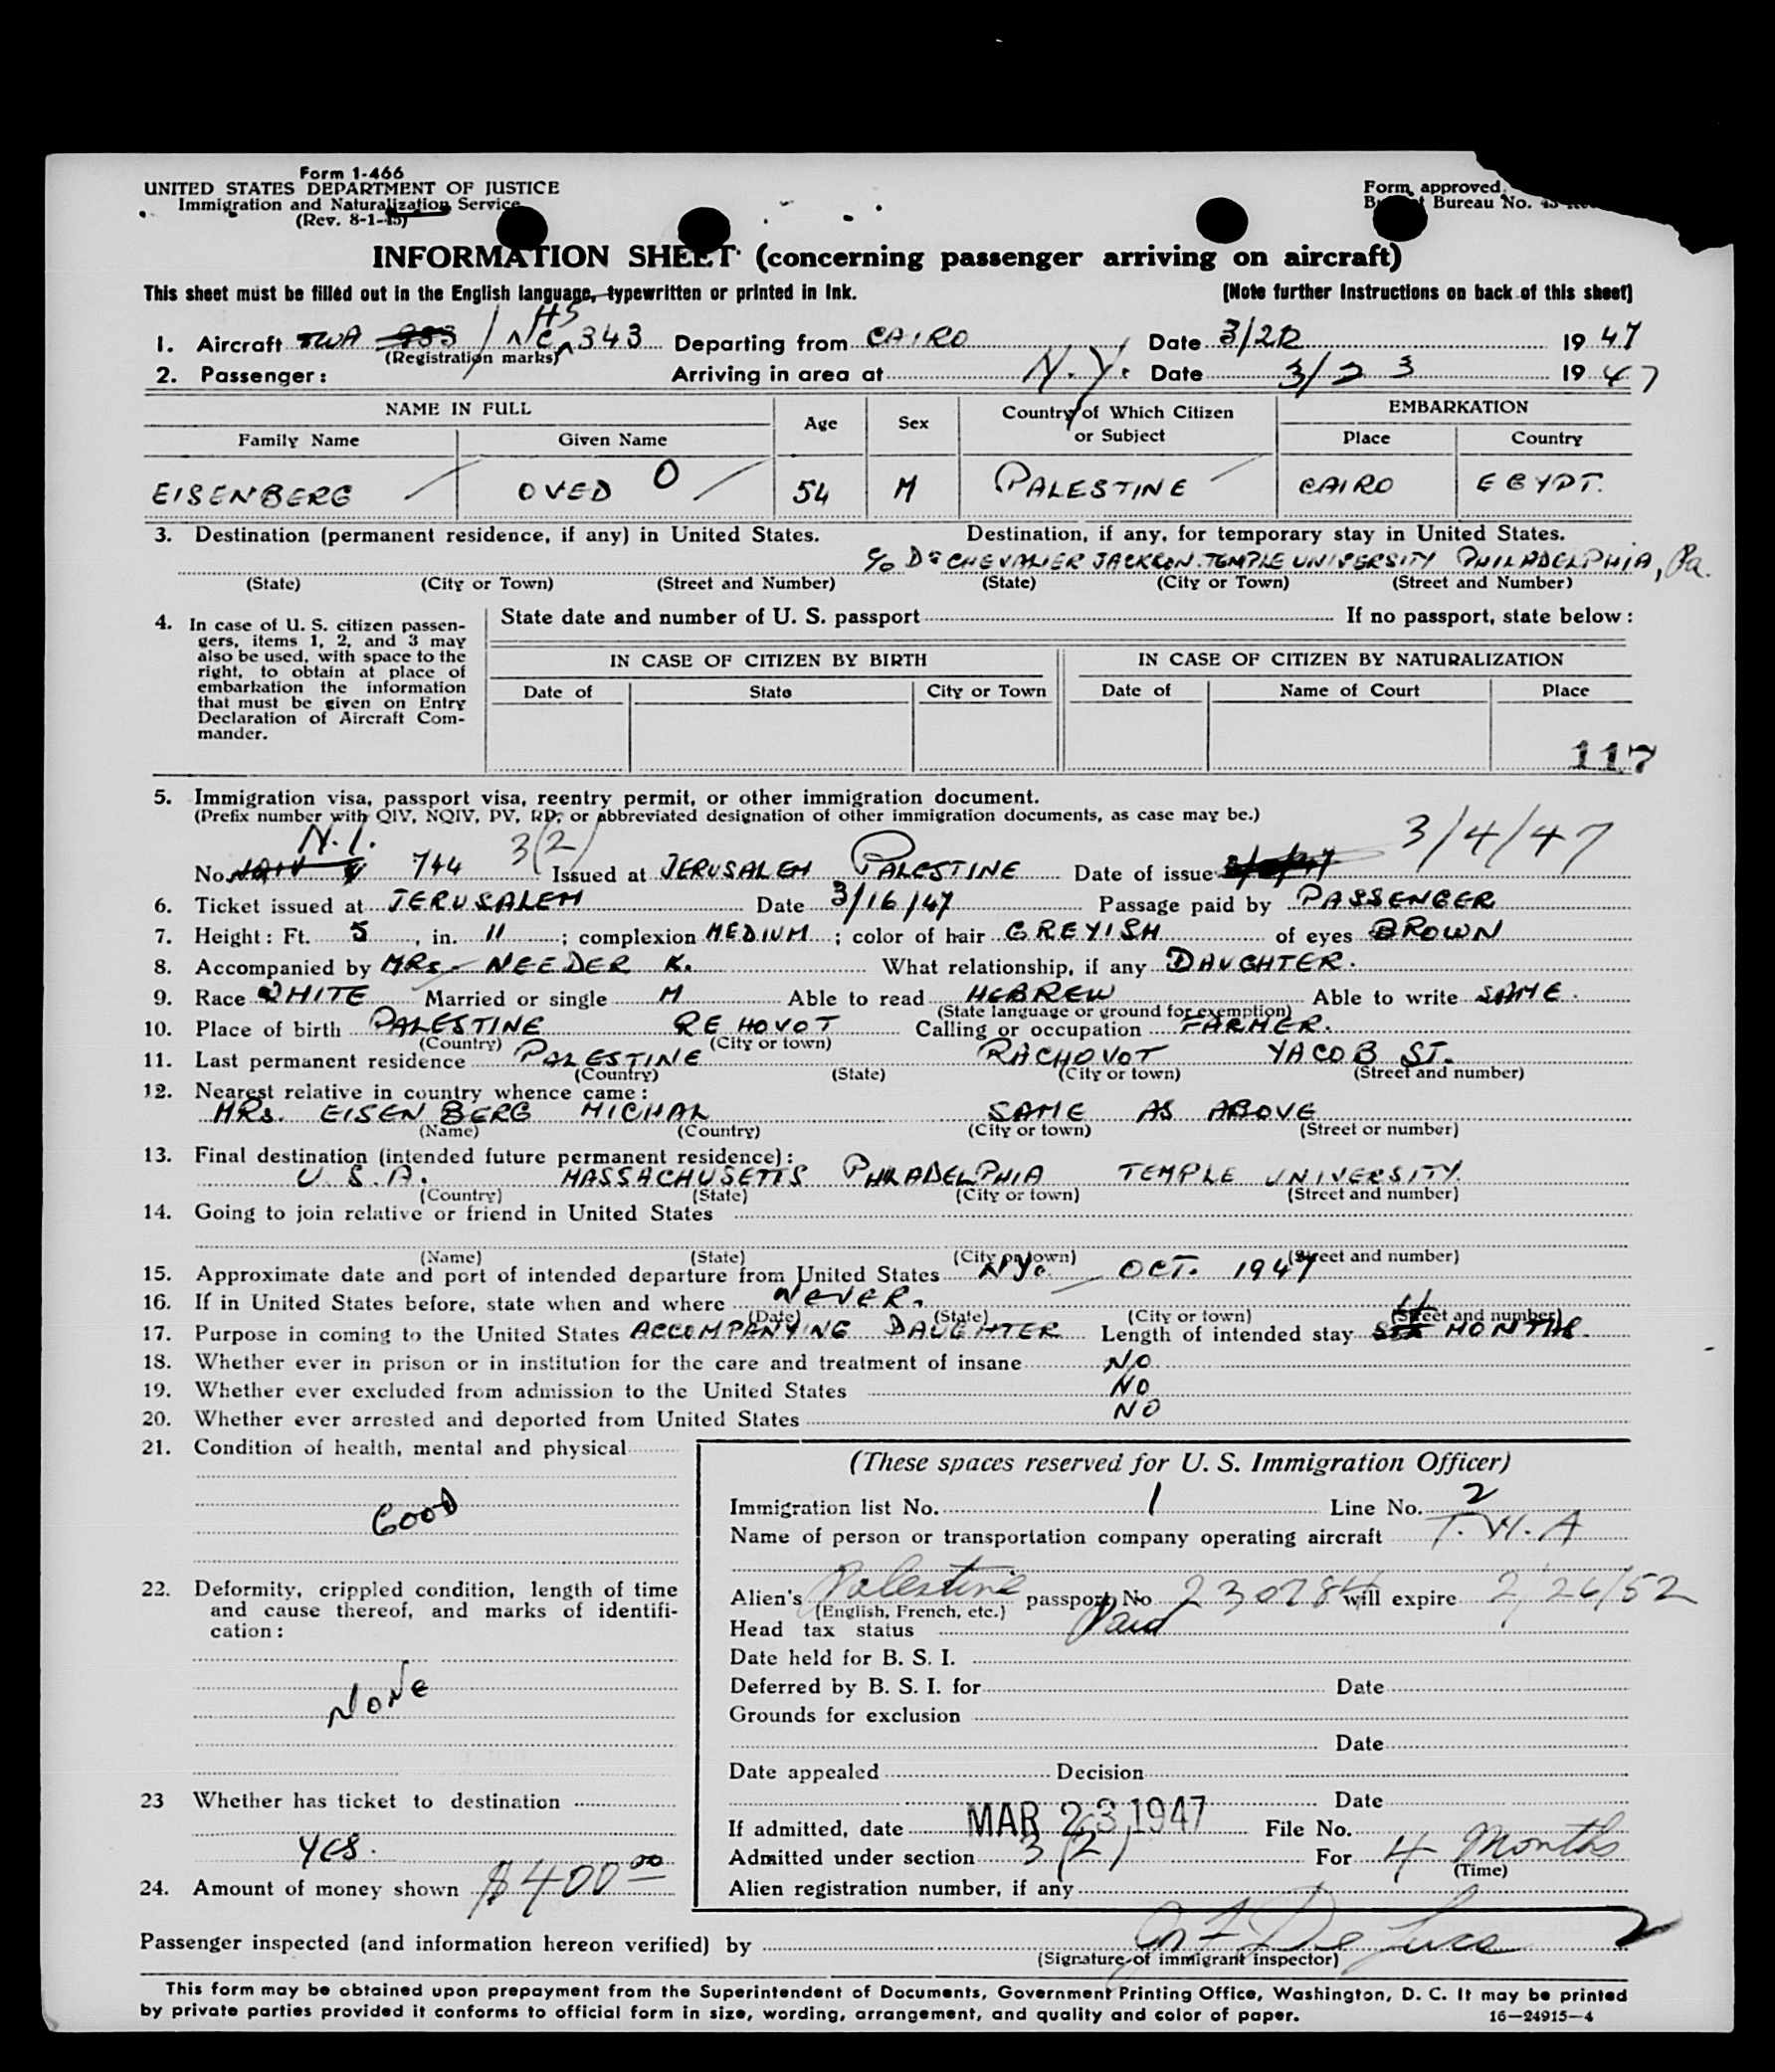 Form 1-466
UNITED STATES DEPARTMENT OF JUSTICE
Immigration and Naturalization Service
(Rev. 8-1-45)
Form approved.
Bureau No.
INFORMATION SHEET (concerning passenger arriving on aircraft)
This sheet must be filled out in the English language, typewritten or printed in ink.
(Note further instructions on back of this sheet)
HS
1. Aircraft TWA 983 / NC 343 Departing from CAIRO Date 3/22 1947
(Registration marks)
2. Passenger: Arriving in area at N.Y. Date 3/23 1947
NAME IN FULL Age Sex Country of Which Citizen or Subject EMBARKATION
Family Name Given Name Place Country
EISENBERG OVED O 54 M PALESTINE CAIRO EGYPT.
3. Destination (permanent residence, if any) in United States. Destination, if any, for temporary stay in United States.
c/o Dr CHEVALIER JACKSON. TEMPLE UNIVERSITY PHILADELPHIA, Pa.
(State) (City or Town) (Street and Number) (State) (City or Town) (Street and Number)
4. In case of U. S. citizen passen-
gers, items 1, 2, and 3 may
also be used, with space to the
right, to obtain at place of
embarkation the information
that must be given on Entry
Declaration of Aircraft Com-
mander.
State date and number of U. S. passport If no passport, state below:
IN CASE OF CITIZEN BY BIRTH IN CASE OF CITIZEN BY NATURALIZATION
Date of State City or Town Date of Name of Court Place
117
5. Immigration visa, passport visa, reentry permit, or other immigration document.
(Prefix number with QIV, NQIV, PV, RP, or abbreviated designation of other immigration documents, as case may be.)
N.I. 3(2) 3/4/47
No. 744 Issued at JERUSALEM PALESTINE Date of issue
6. Ticket issued at JERUSALEM Date 3/16/47 Passage paid by PASSENGER
7. Height: Ft. 5, in. 11; complexion MEDIUM; color of hair GREYISH of eyes BROWN
8. Accompanied by MRs. NEEDER K. What relationship, if any DAUGHTER.
9. Race WHITE Married or single M Able to read HEBREW Able to write SAME.
(State language or ground for exemption)
10. Place of birth PALESTINE REHOVOT Calling or occupation FARMER.
(Country) (City or town)
11. Last permanent residence PALESTINE RACHOVOT YACOB ST.
(Country) (State) (City or town) (Street and number)
12. Nearest relative in country whence came:
MRs. EISENBERG MICHAL SAME AS ABOVE
(Name) (Country) (City or town) (Street or number)
13. Final destination (intended future permanent residence):
U.S.A. MASSACHUSETTS PHILADELPHIA TEMPLE UNIVERSITY.
(Country) (State) (City or town) (Street and number)
14. Going to join relative or friend in United States
(Name) (State) (City or town) (Street and number)
15. Approximate date and port of intended departure from United States N.Y. OCT. 1947
16. If in United States before, state when and where NEVER.
(Date) (State) (City or town) (Street and number)
17. Purpose in coming to the United States ACCOMPANYING DAUGHTER Length of intended stay SIX 4 MONTHS.
18. Whether ever in prison or in institution for the care and treatment of insane NO
19. Whether ever excluded from admission to the United States NO
20. Whether ever arrested and deported from United States NO
21. Condition of health, mental and physical
GOOD
22. Deformity, crippled condition, length of time
and cause thereof, and marks of identifi-
cation:
NONE
23 Whether has ticket to destination
YES.
24. Amount of money shown $400.00
(These spaces reserved for U. S. Immigration Officer)
Immigration list No. 1 Line No. 2
Name of person or transportation company operating aircraft T.W.A
Alien's Palestine passport No 230784 will expire 2/26/52
(English, French, etc.)
Head tax status Paid
Date held for B. S. I.
Deferred by B. S. I. for Date
Grounds for exclusion
Date
Date appealed Decision
Date
If admitted, date MAR 23 1947 File No.
Admitted under section 3(2) For 4 Months
(Time)
Alien registration number, if any
Passenger inspected (and information hereon verified) by De Luca
(Signature of immigrant inspector)
This form may be obtained upon prepayment from the Superintendent of Documents, Government Printing Office, Washington, D. C. It may be printed
by private parties provided it conforms to official form in size, wording, arrangement, and quality and color of paper. 16—24915-4